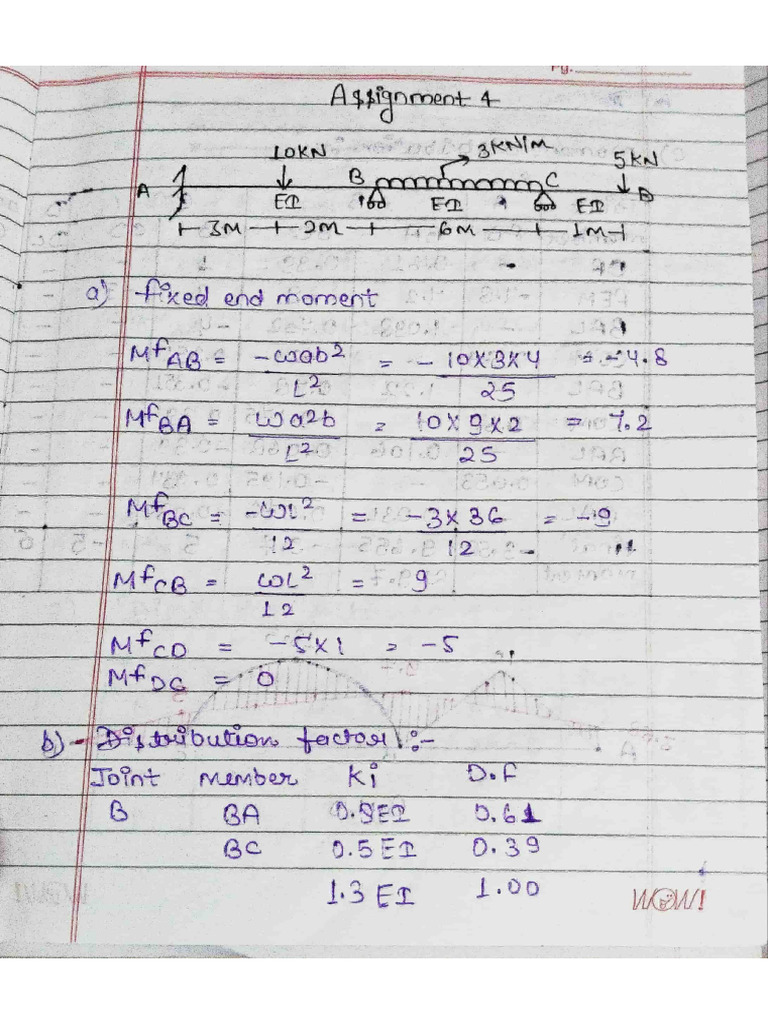 Pg.
Assignment 4
10KN 3KN/M 5KN
A B C D
EI EI EI
3M 2M 6M 1M
a) fixed end moment
MfAB = -wab² / L² = - 10×3×4 / 25 = -4.8
MfBA = wa2b / L² = 10×9×2 / 25 = 7.2
MfBC = -wL² / 12 = -3×36 / 12 = -9
MfCB = wL² / 12 = 9
MfCD = -5×1 = -5
MfDC = 0
b) Distribution factor :-
Joint Member Ki D.f
B BA 0.8EI 0.61
BC 0.5EI 0.39
1.3 EI 1.00
WOW!